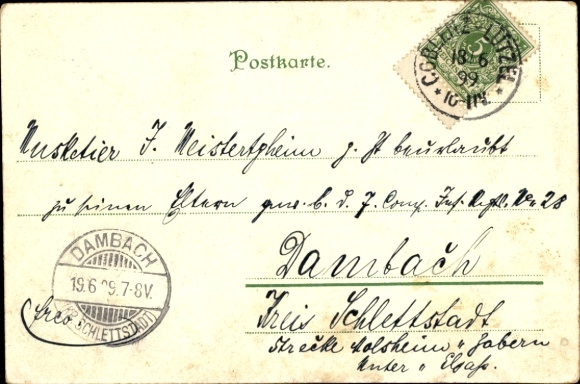 Postkarte.
COBLENZ-LÜTZEL
18 6
99
5
Musketier J. Meistertzheim z. Zt beurlaubt
zu seinen Eltern gew. b. d. 7. Comp. Inf. Regt. No 28
Dambach
DAMBACH
19.6.99.7-8V.
(KR. SCHLETTSTADT)
Kreis Schlettstadt
Strecke Molsheim u Zabern
Unter „ Elsaß.